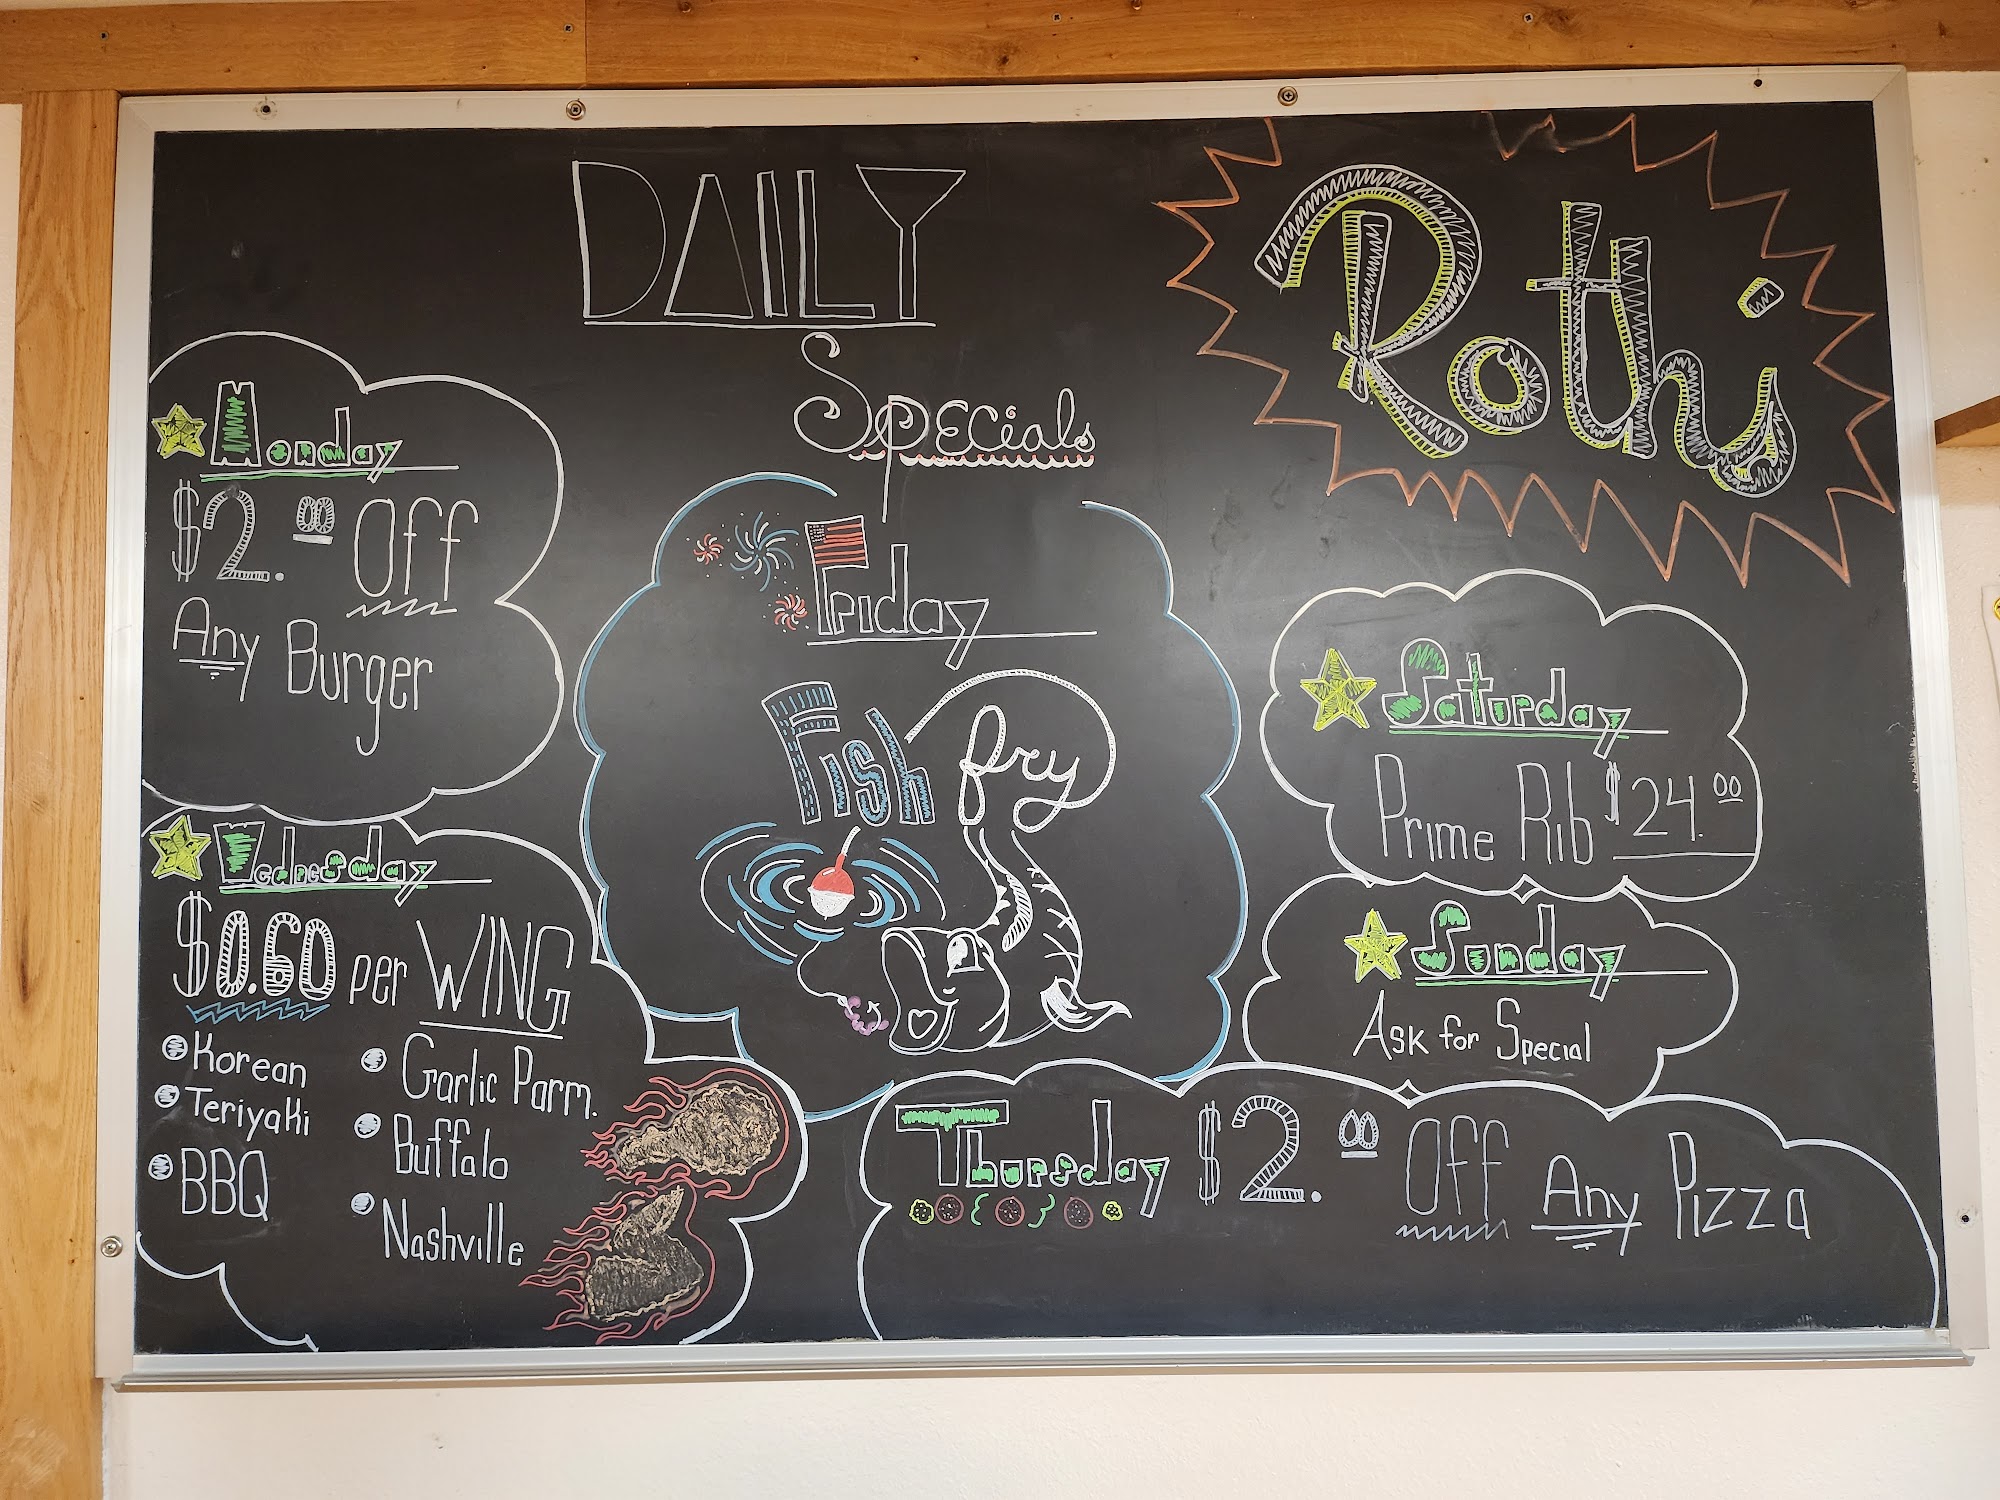 DAILY
Specials
Rothi
Monday
$2.00 Off
Any Burger
Wednesday
$0.60 per WING
Korean
Teriyaki
BBQ
Garlic Parm.
Buffalo
Nashville
Friday
Fish fry
Saturday
Prime Rib $24.00
Sunday
Ask for Special
Thursday $2.00 Off Any Pizza